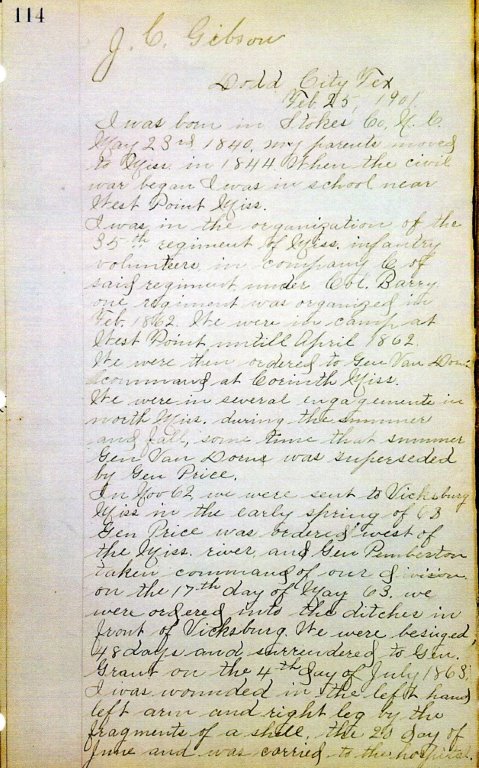 114
J. C. Gibson
Dodd City Tex
Feb 25, 1901
I was born in Stokes Co, N. C.
May 23rd 1840, my parents moved
to Miss. in 1844. When the civil
war began I was in school near
West Point Miss.
I was in the organization of the
35th regiment of Miss. infantry
volunteers in company C of
said regiment under Col. Barry
one regiment was organized in
Feb. 1862. We were in camp at
West Point untill April 1862.
We were then ordered to Gen Van Dorns
command at Corinth Miss.
We were in several engagements in
north Miss. during the summer
and fall, some time that summer
Gen Van Dorns was superseded
by Gen Price.
In Nov 62 we were sent to Vicksburg
Miss in the early spring of 63
Gen Price was ordered west of
the Miss. river, and Gen Pemberton
taken command of our division
on the 17th day of May 63. we
were ordered into the ditches in
front of Vicksburg. We were besiged,
48 days and surrendered to Gen.
Grant on the 4th day of July 1863,
I was wounded in the left hand
left arm and right leg by the
fragments of a shell. the day of
June and was carried to the hospital.